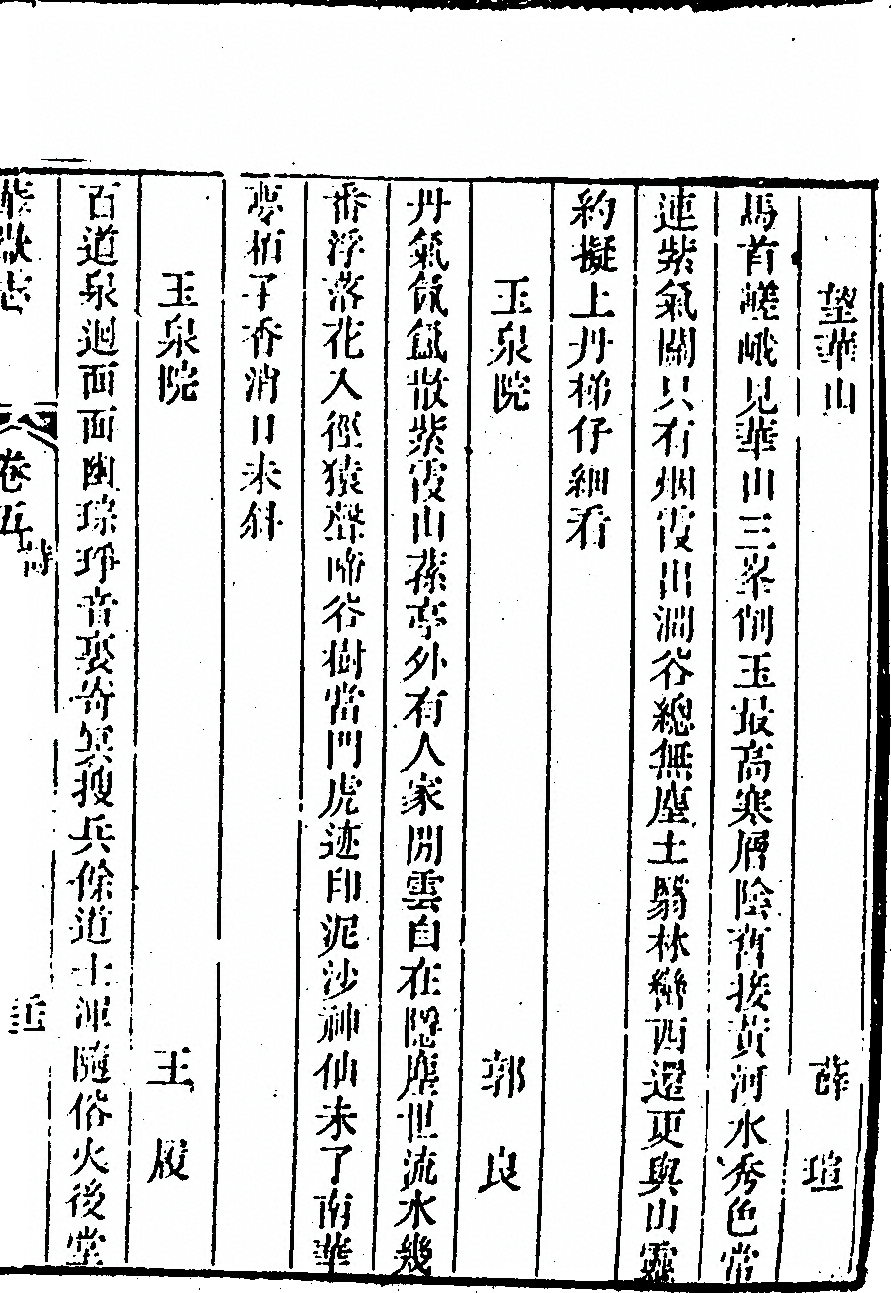 望華山　薛瑄
馬首嵯峨見華山三峯削玉最高寒層陰舊接黃河水秀色常
連紫氣關只有烟霞出澗谷總無塵土翳林巒西還更與山靈
約擬上丹梯仔細看
玉泉院　郭良
丹氣氤氳散紫霞山蓀亭外有人家閒雲自在隱塵世流水幾
番浮落花入徑猿聲啼谷樹當門虎迹印泥沙神仙未了南華
夢栢子香消日未斜
玉泉院　王履
百道泉迴面面幽琮琤音裏寄冥搜兵餘道士渾隨俗火後堂
華嶽志　卷五　詩